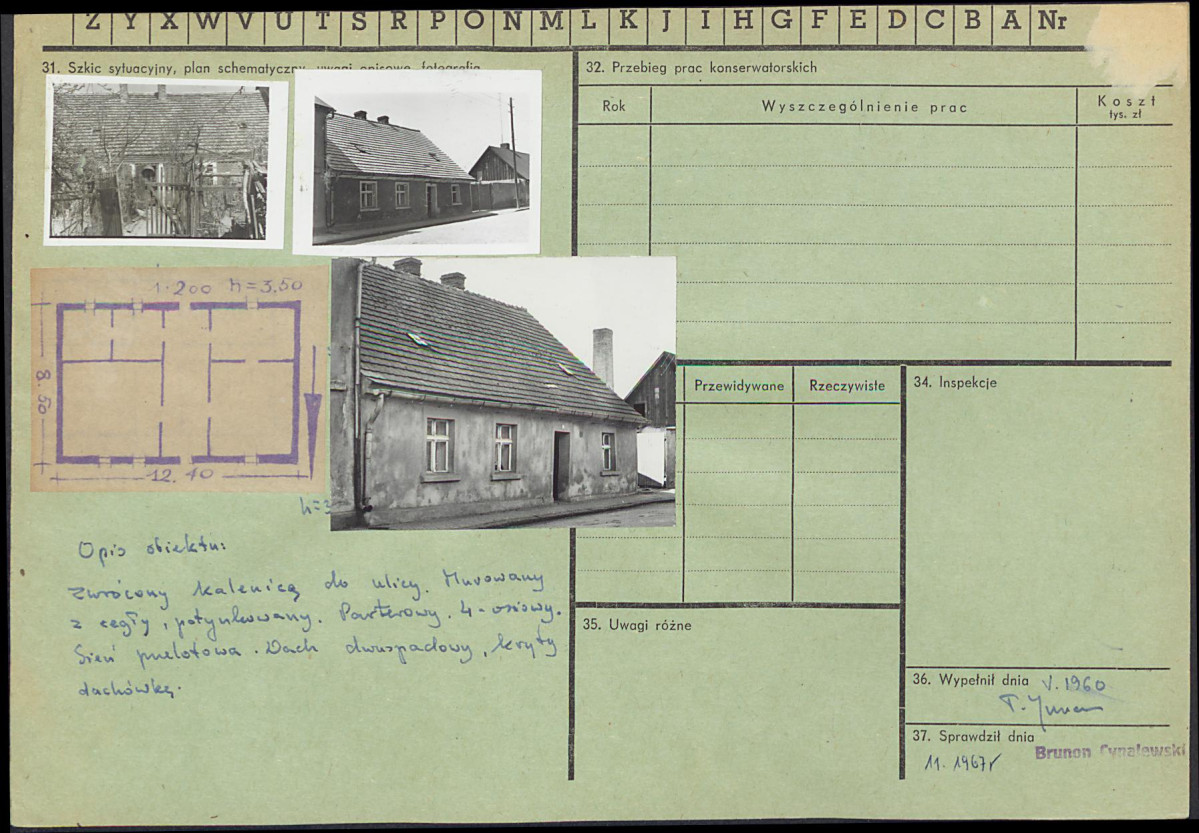 Z Y X W V U T S R P O N M L K J I H G F E D C B A Nr
31. Szkic sytuacyjny, plan schematyczny, uwagi opisowe, fotografia
1:200 h=3,50
8.50
12.40
h=3
Opis obiektu:
Zwrócony kalenicą do ulicy. Murowany
z cegły, potynkowany. Parterowy. 4-osiowy.
Sień przelotowa. Dach dwuspadowy, kryty
dachówką.
32. Przebieg prac konserwatorskich
Rok
Wyszczególnienie prac
Koszt
tys. zł
Przewidywane
Rzeczywiste
34. Inspekcje
35. Uwagi różne
36. Wypełnił dnia V. 1960
37. Sprawdził dnia
Brunon Cynalewski
11. 1967r